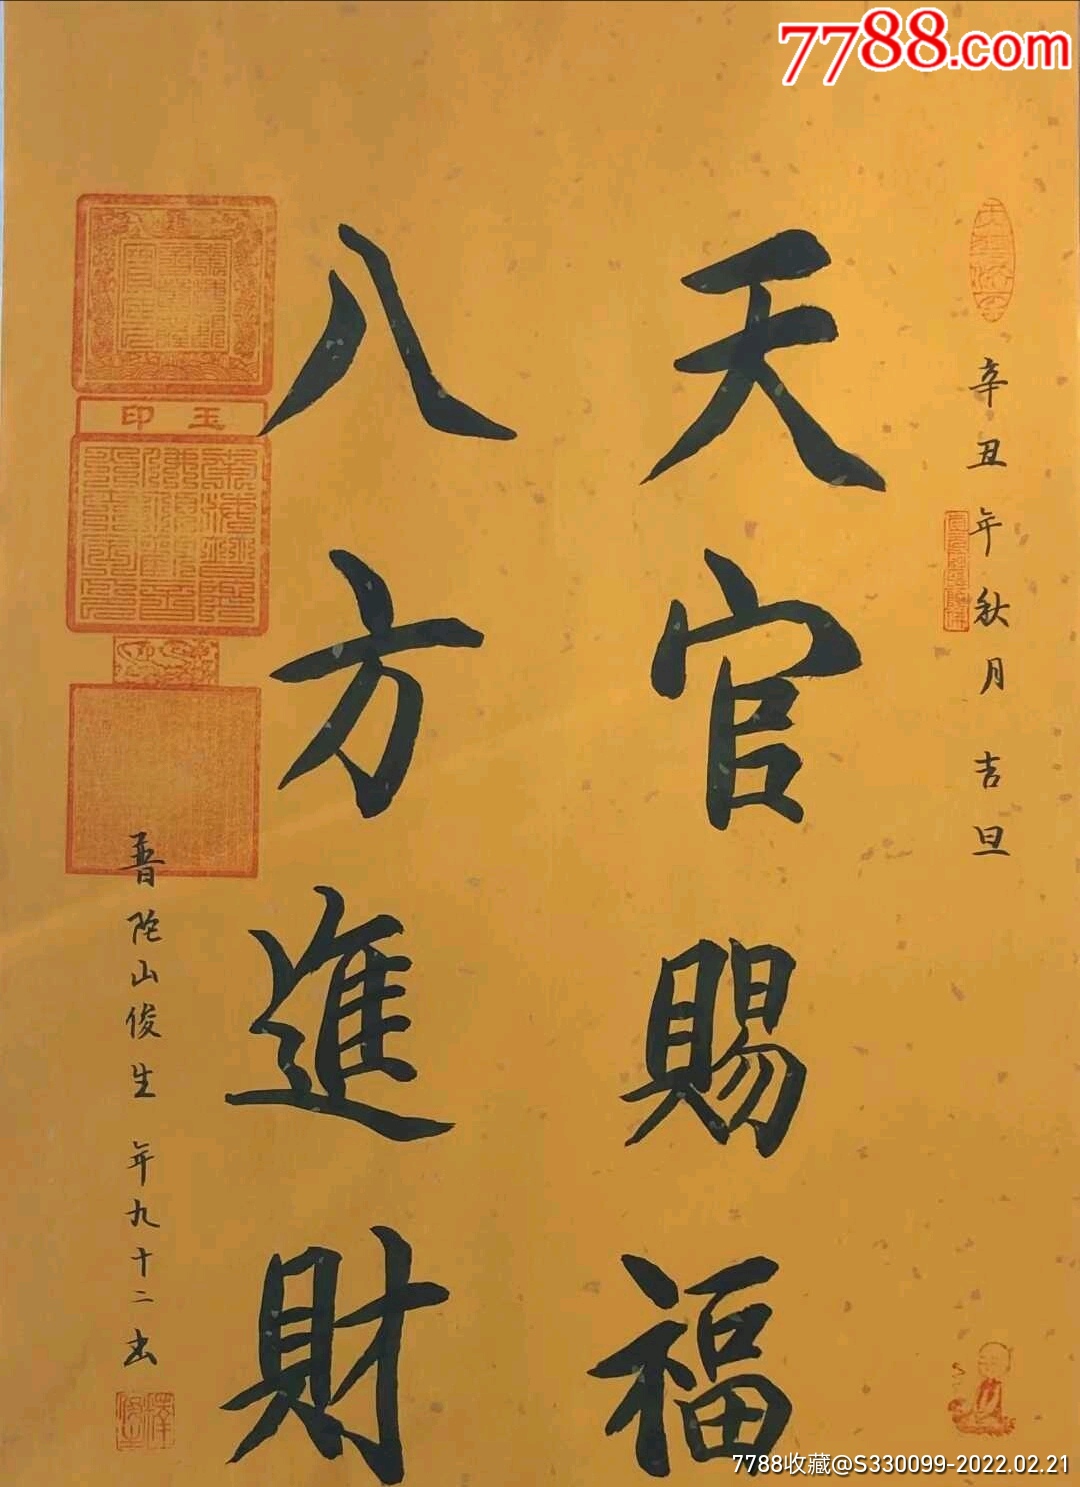 7788.com
辛丑年秋月吉旦
天官賜福
八方進財
普陀山俊生 年九十二书
玉印
7788收藏@S330099-2022.02.21